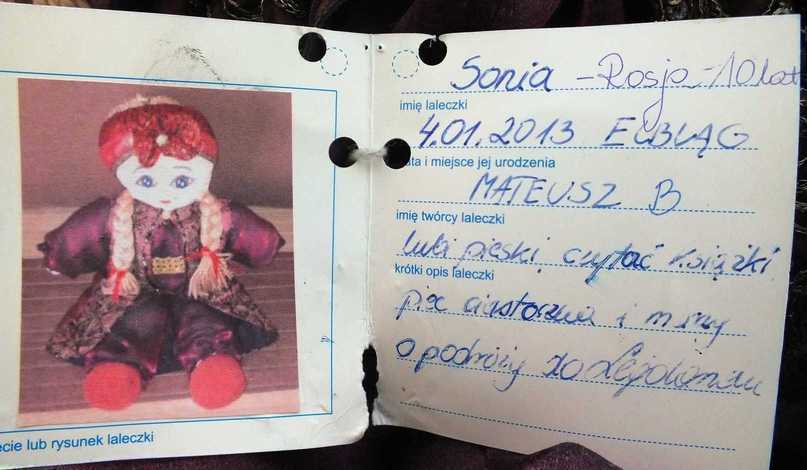 ęcie lub rysunek laleczki
Sonia - Rosja - 10 lat
imię laleczki
4.01.2013 ELBLĄG
ata i miejsce jej urodzenia
MATEUSZ B
imię twórcy laleczki
lubi pieski, czytać książki
krótki opis laleczki
piec ciasteczka i marzy
o podróży do Legolandu